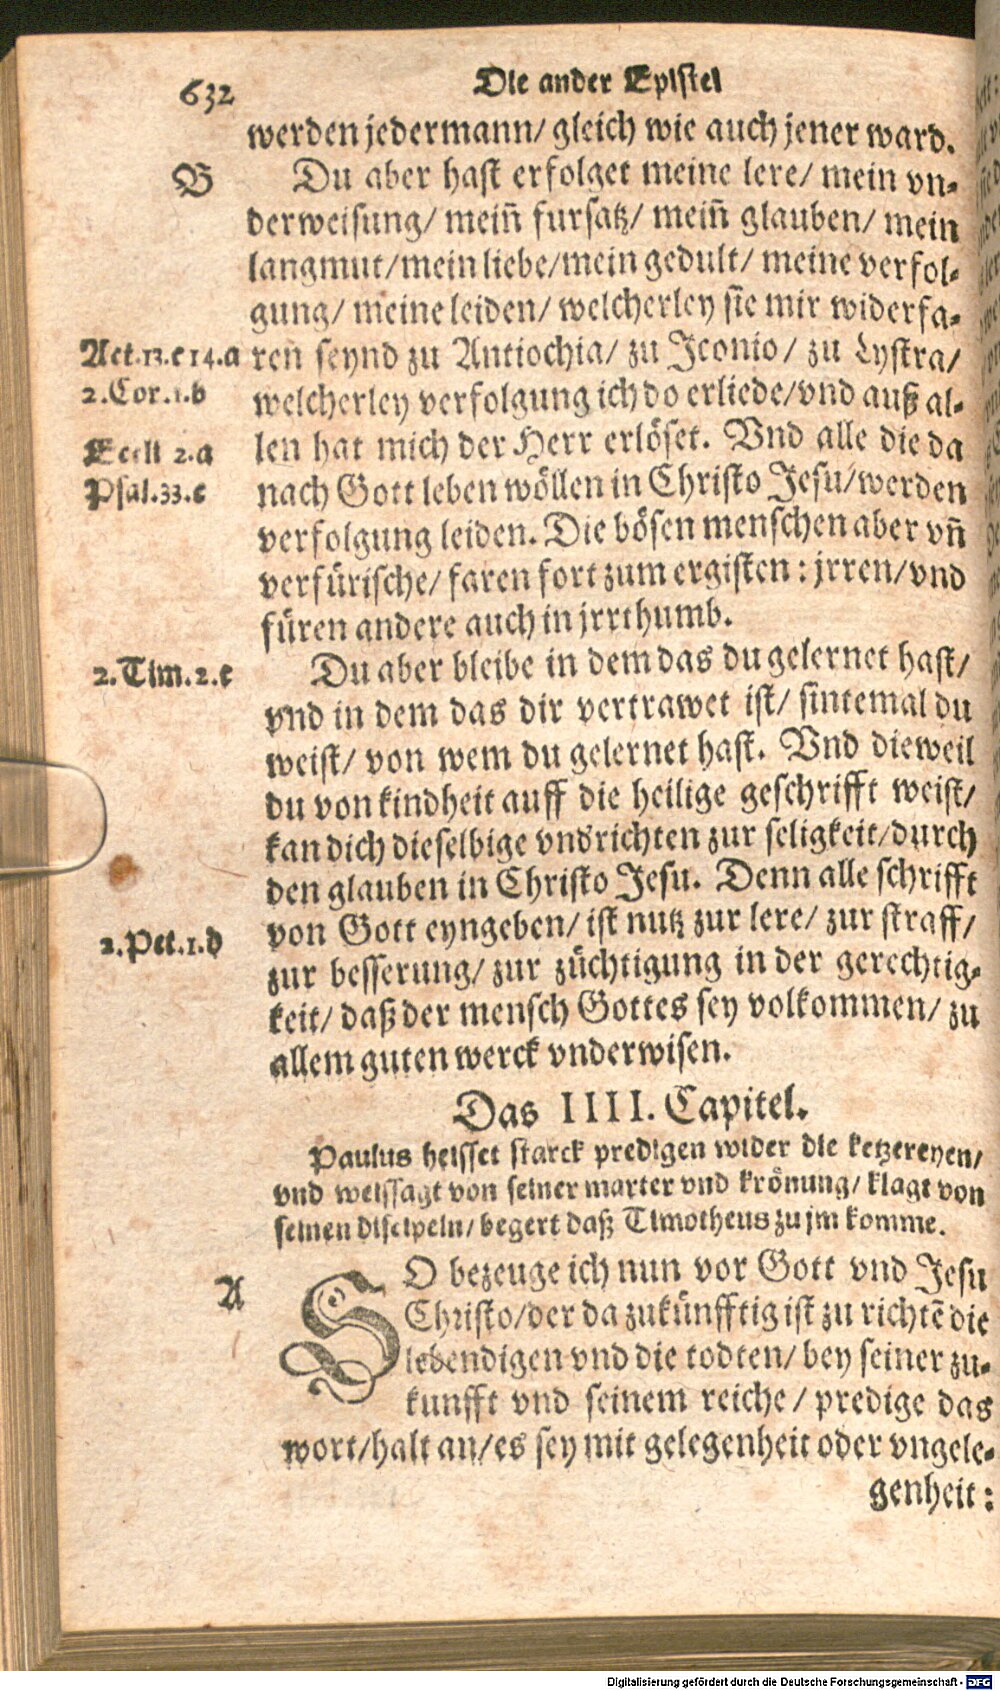 632
Die ander Epistel
werden jedermann/ gleich wie auch jener ward.
B
Du aber hast erfolget meine lere/ mein vn-
derweisung/ meiñ fursatz/ meiñ glauben/ mein
langmut/ mein liebe/ mein gedult/ meine verfol-
gung/ meine leiden/ welcherley sie mir widerfa-
Act.13.c 14.a
ren seynd zu Antiochia/ zu Iconio/ zu Lystra/
2.Cor.1.b
welcherley verfolgung ich do erliede/ vnd auß al-
Eccli 2.a
len hat mich der Herr erlöset. Vnd alle die da
Psal.33.c
nach Gott leben wöllen in Christo Jesu/ werden
verfolgung leiden. Die bösen menschen aber vñ
verfürische/ faren fort zum ergisten: jrren/ vnd
füren andere auch in jrrthumb.
2.Tim.2.c
Du aber bleibe in dem das du gelernet hast/
vnd in dem das dir vertrawet ist/ sintemal du
weist/ von wem du gelernet hast. Vnd dieweil
du von kindheit auff die heilige geschrifft weist/
kan dich dieselbige vndrichten zur seligkeit/ durch
den glauben in Christo Jesu. Denn alle schrifft
2.Pet.1.d
von Gott eyngeben/ ist nutz zur lere/ zur straff/
zur besserung/ zur züchtigung in der gerechtig-
keit/ daß der mensch Gottes sey volkommen/ zu
allem guten werck vnderwisen.
Das IIII. Capitel.
Paulus heisset starck predigen wider die ketzereyen/
vnd weissagt von seiner marter vnd krönung/ klagt von
seinen discipeln/ begert daß Timotheus zu jm komme.
A
SO bezeuge ich nun vor Gott vnd Jesu
Christo/ der da zukünfftig ist zu richtē die
lebendigen vnd die todten/ bey seiner zu-
kunfft vnd seinem reiche/ predige das
wort/ halt an/ es sey mit gelegenheit oder vngele-
genheit:
Digitalisierung gefördert durch die Deutsche Forschungsgemeinschaft - DFG